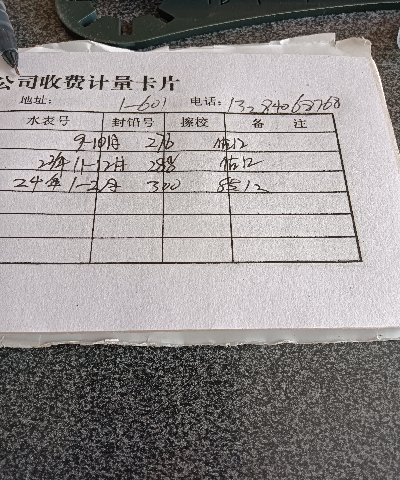 公司收费计量卡片
地址: 1-601 电话: 13284068768
水表号 封铅号 擦校 备 注
9-10月 276 估12
23年 11-12月 288 估12
24年 1-2月 300 估12